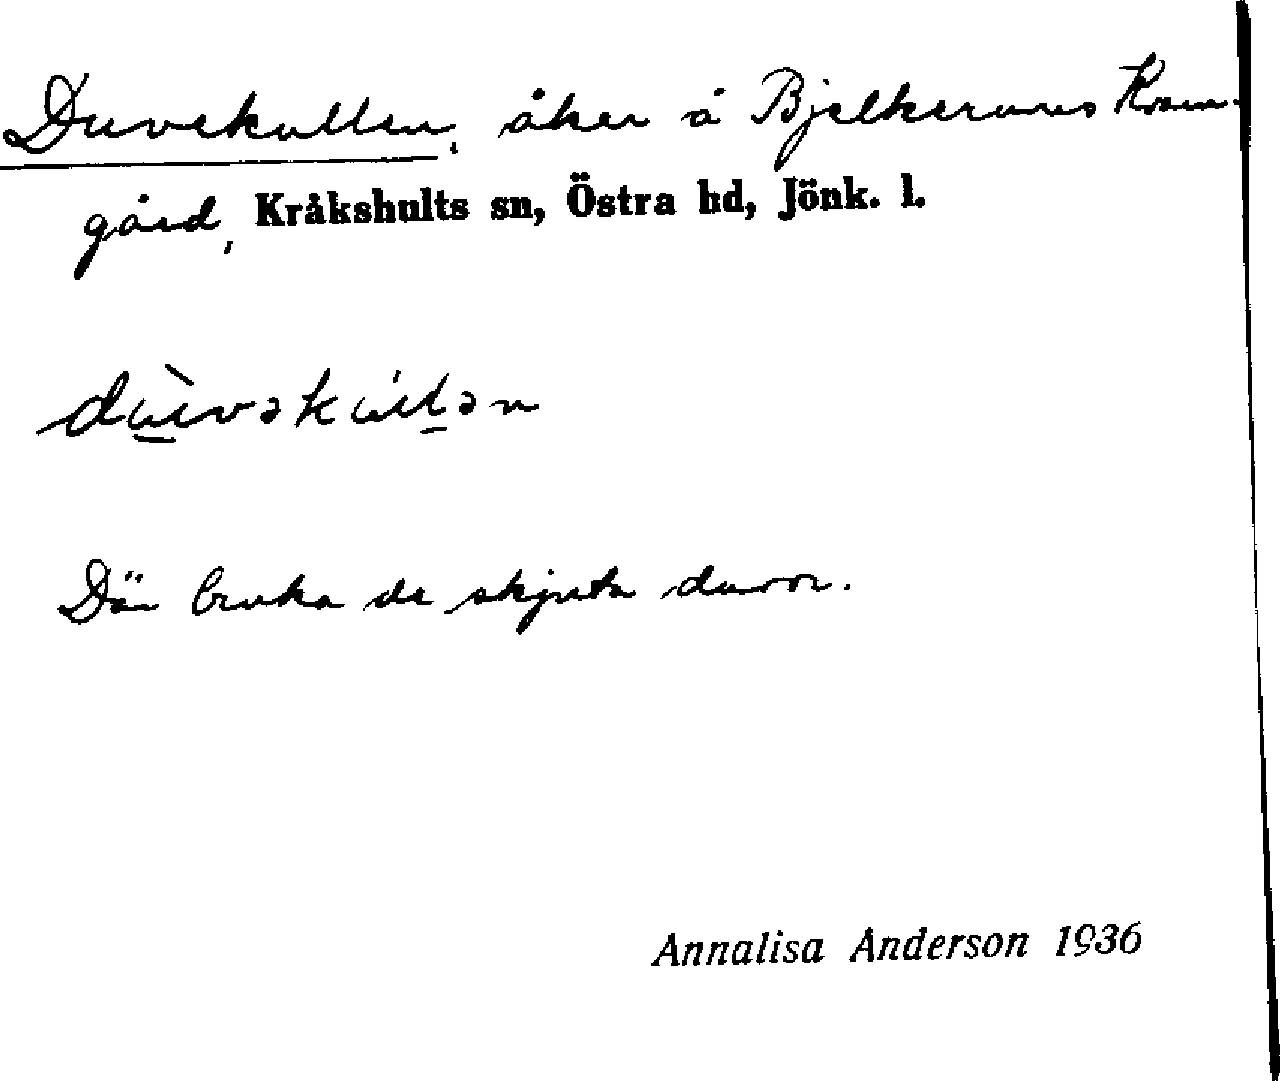 Duvekullen, åker å Bjelkerums Kvarn-
gård, Kråkshults sn, Östra hd, Jönk. l.
Där bruka de skjuta duvor.
Annalisa Anderson 1936